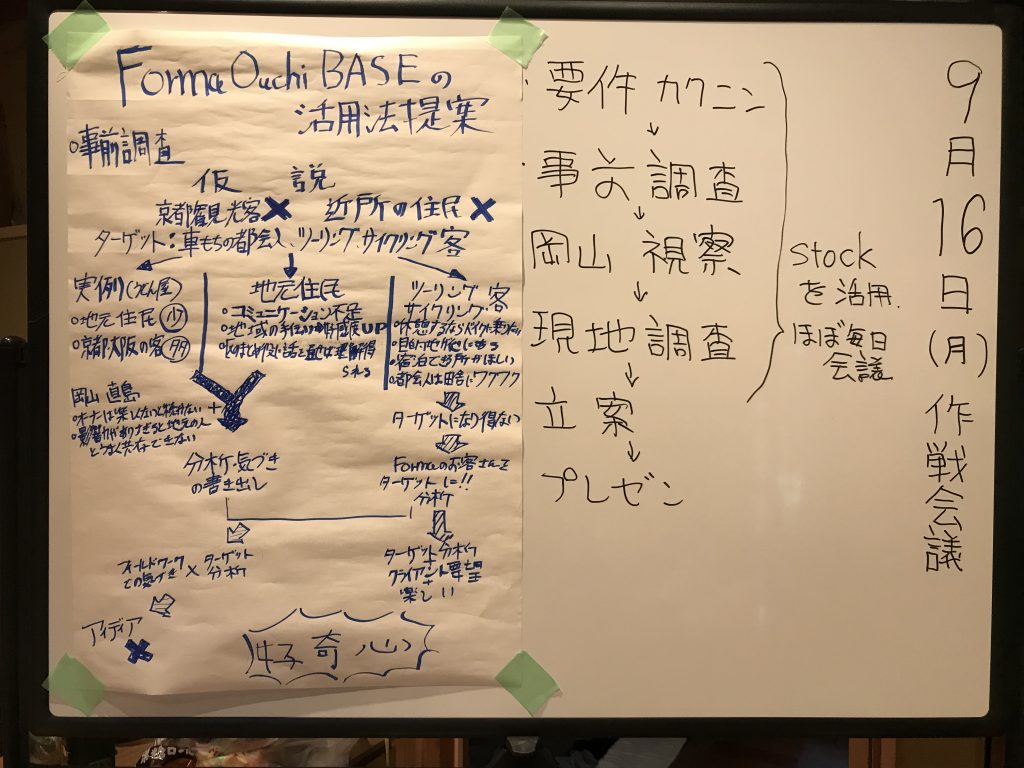 Forma Ouchi BASEの
活用法提案
○事前調査
仮 説
京都観光客✖ 近所の住民✖
ターゲット：車もちの都会人、ツーリング、サイクリング客
実例(うどん屋)
○地元住民 少
○京都大阪の客 多
岡山 直島
うまく共存できない
地元住民
○コミュニケーション不足
られる
ツーリング客
サイクリング
○都会人は田舎にワクワク
ターゲットになり得ない
Formaのお客さんを
ターゲットに!!
分析
分析・気づき
の書き出し
フィールドワーク
での気づき × ターゲット
分析
ターゲット分析
+
クライアント要望
+
楽しい
アイディア
✖
好奇心
・要件 カクニン
↓
・事前調査
↓
岡山 視察
↓
現地調査
↓
立案
↓
プレゼン
stock
を活用.
ほぼ毎日
会議
9月16日(月) 作戦会議